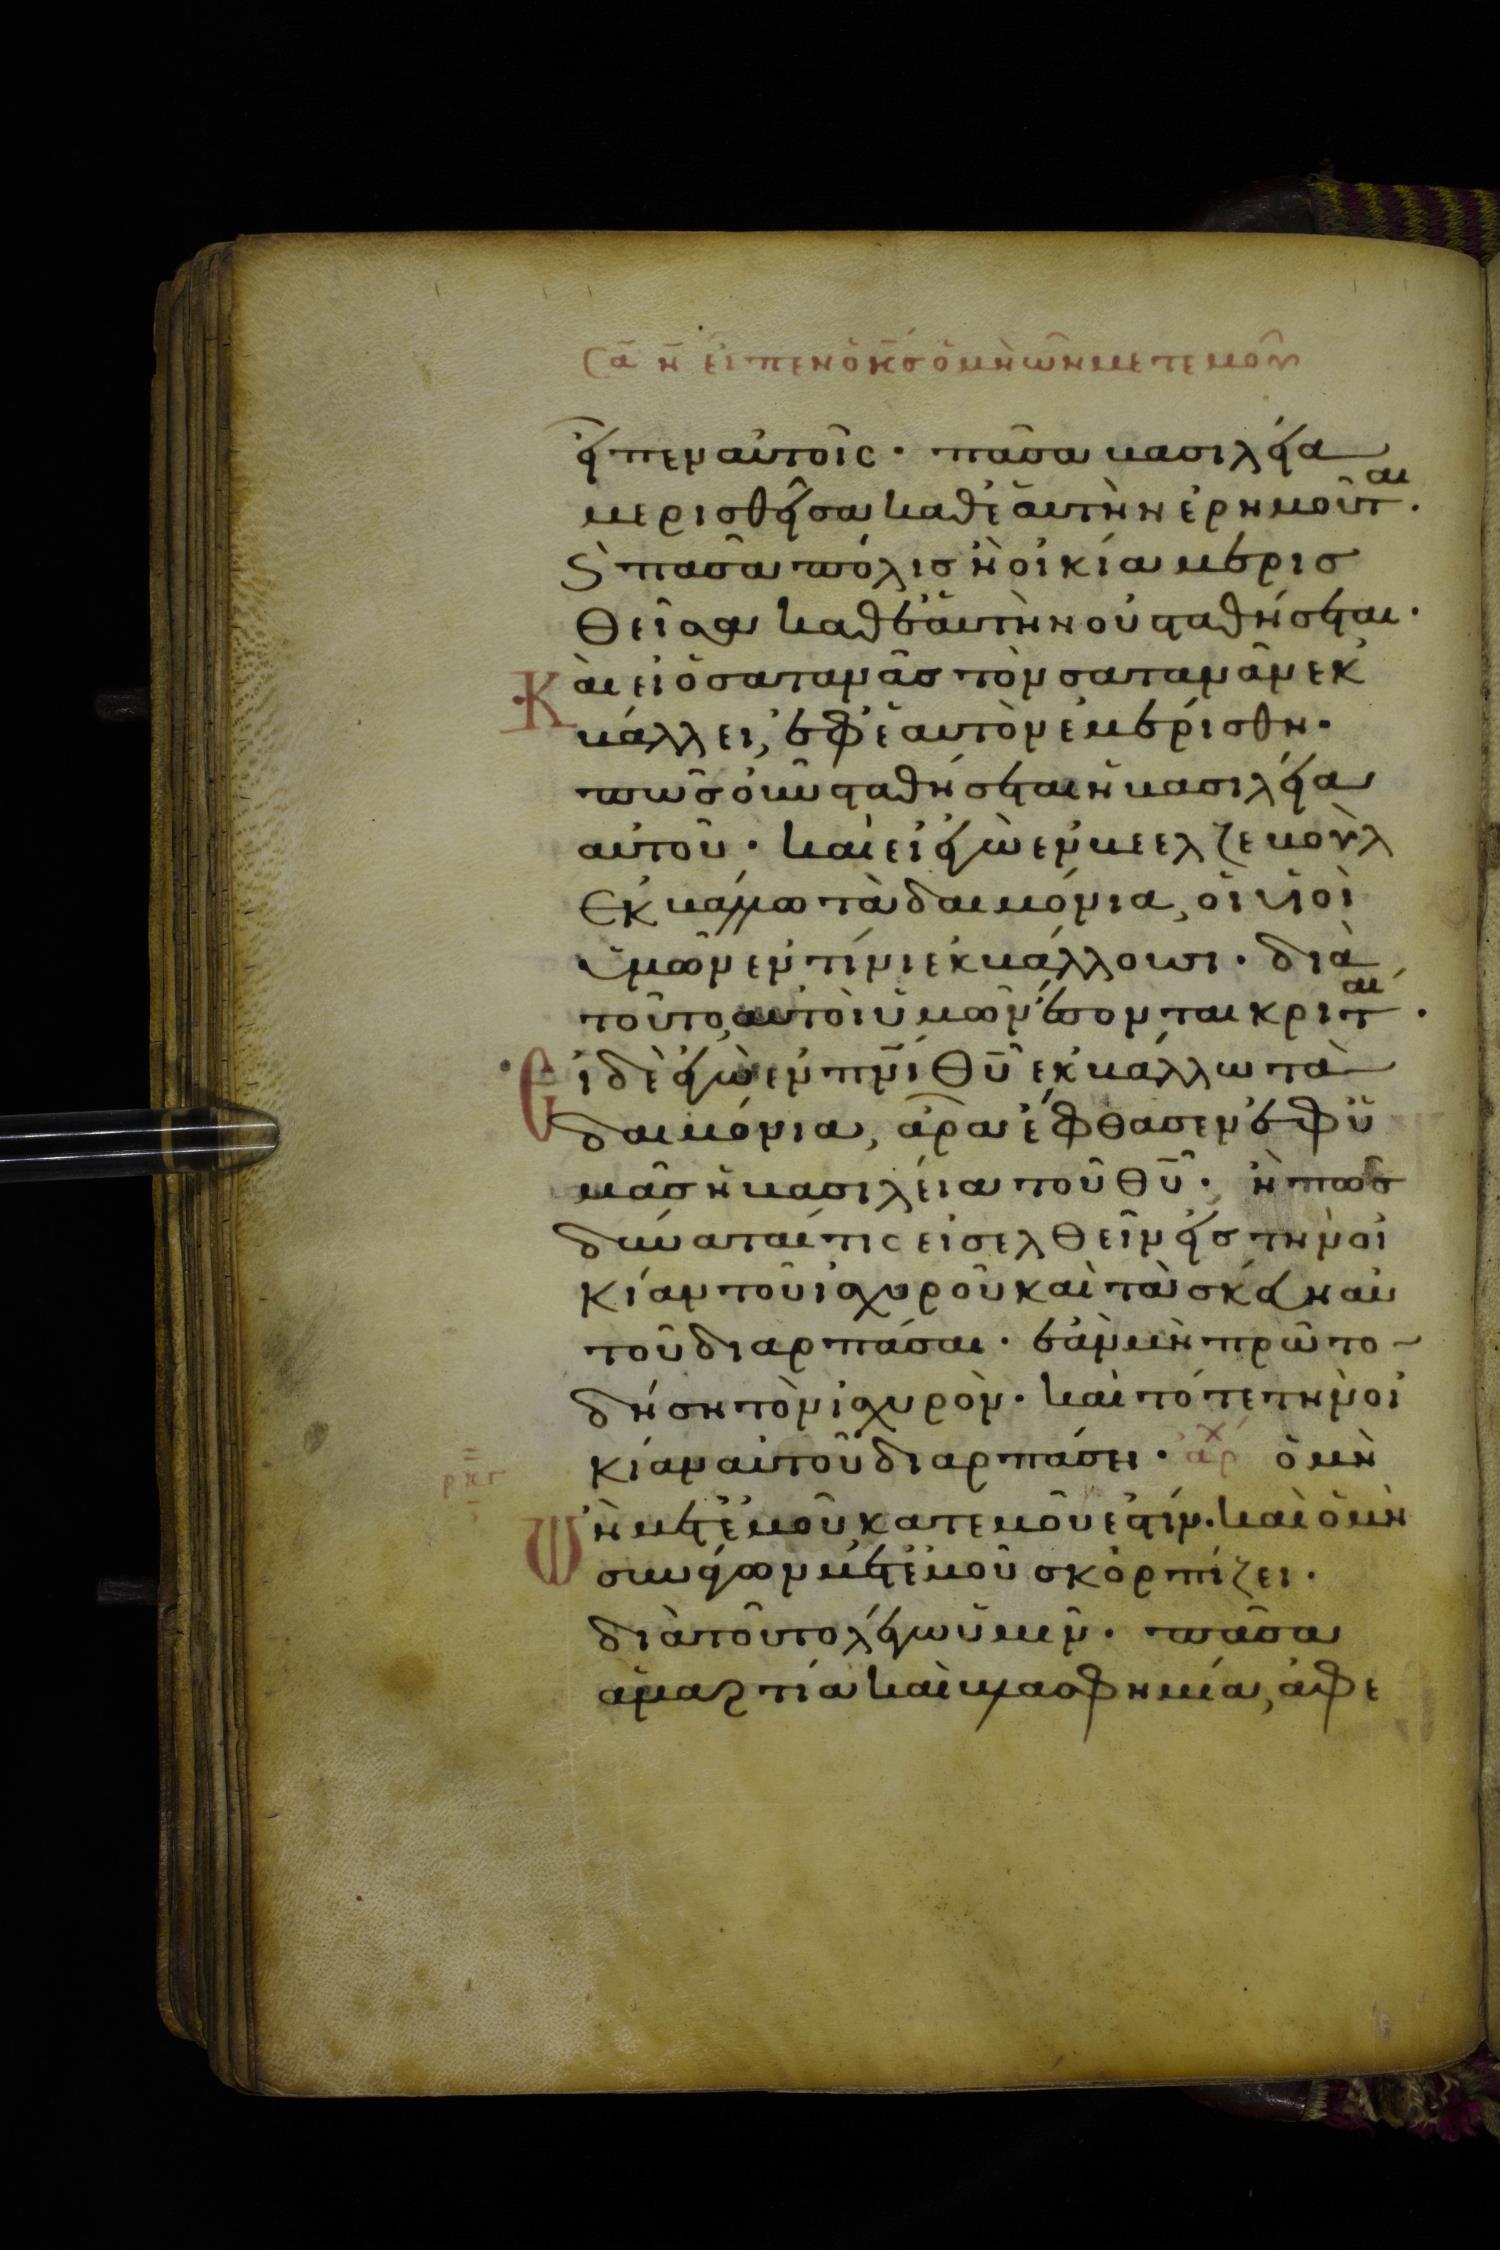 Σα η ειπεν ὁ κς ὁ μὴ ὢν μετ εμοῦ
εἶπεν αὐτοῖς · πᾶσα βασιλεία
μερισθεῖσα καθ ἑαυτὴν ἐρημοῦται ·
ϛ πᾶσα πόλισ ἢ οἰκία μερισ
θεῖσα καθ ἑαυτὴν οὐ σταθήσεται ·
Και εἰ ὁ σατανᾶσ τὸν σατανᾶν εκ
βάλλει, ἐφ ἑαυτὸν ἐμερίσθη ·
πῶσ οὖν σταθήσεται ἡ βασιλεία
αὐτοῦ · καὶ εἰ ἐγὼ ἐν βεελζεβοὺλ
ἐκβάλλω τὰ δαιμόνια, οἱ υἱοὶ
ὑμῶν ἐν τίνι ἐκβάλλουσι · διὰ
τοῦτο, αυτοὶ ὑμῶν ἔσονται κριταί ·
Εἰ δὲ ἐγὼ ἐν πνι θυ ἐκβάλλω τὰ
δαιμόνια, ἄρα ἔφθασεν ἐφ ὑ
μᾶσ ἡ βασιλεία τοῦ θυ · ἢ πῶσ
δύναταί τις εἰσελθεῖν εἰσ τὴν οἰ
κίαν τοῦ ἰσχυροῦ καὶ τὰ σκεύη αὐ
τοῦ διαρπάσαι · ἐὰν μὴ πρῶτο
δήση τὸν ἰσχυρὸν · καὶ τότε τὴν οἰ
κίαν αὐτοῦ διαρπάσει · ἀρχ ὁ μὴ
ρκγ
Ὢν μετ ἐμοῦ κατ εμοῦ ἐστίν · καὶ ὁ μὴ
συνάγων μετ ἐμοῦ σκορπίζει ·
διὰ τοῦτο λέγω ὑμῖν · πᾶσα
ἁμαρτία καὶ βλασφημία, ἀφε